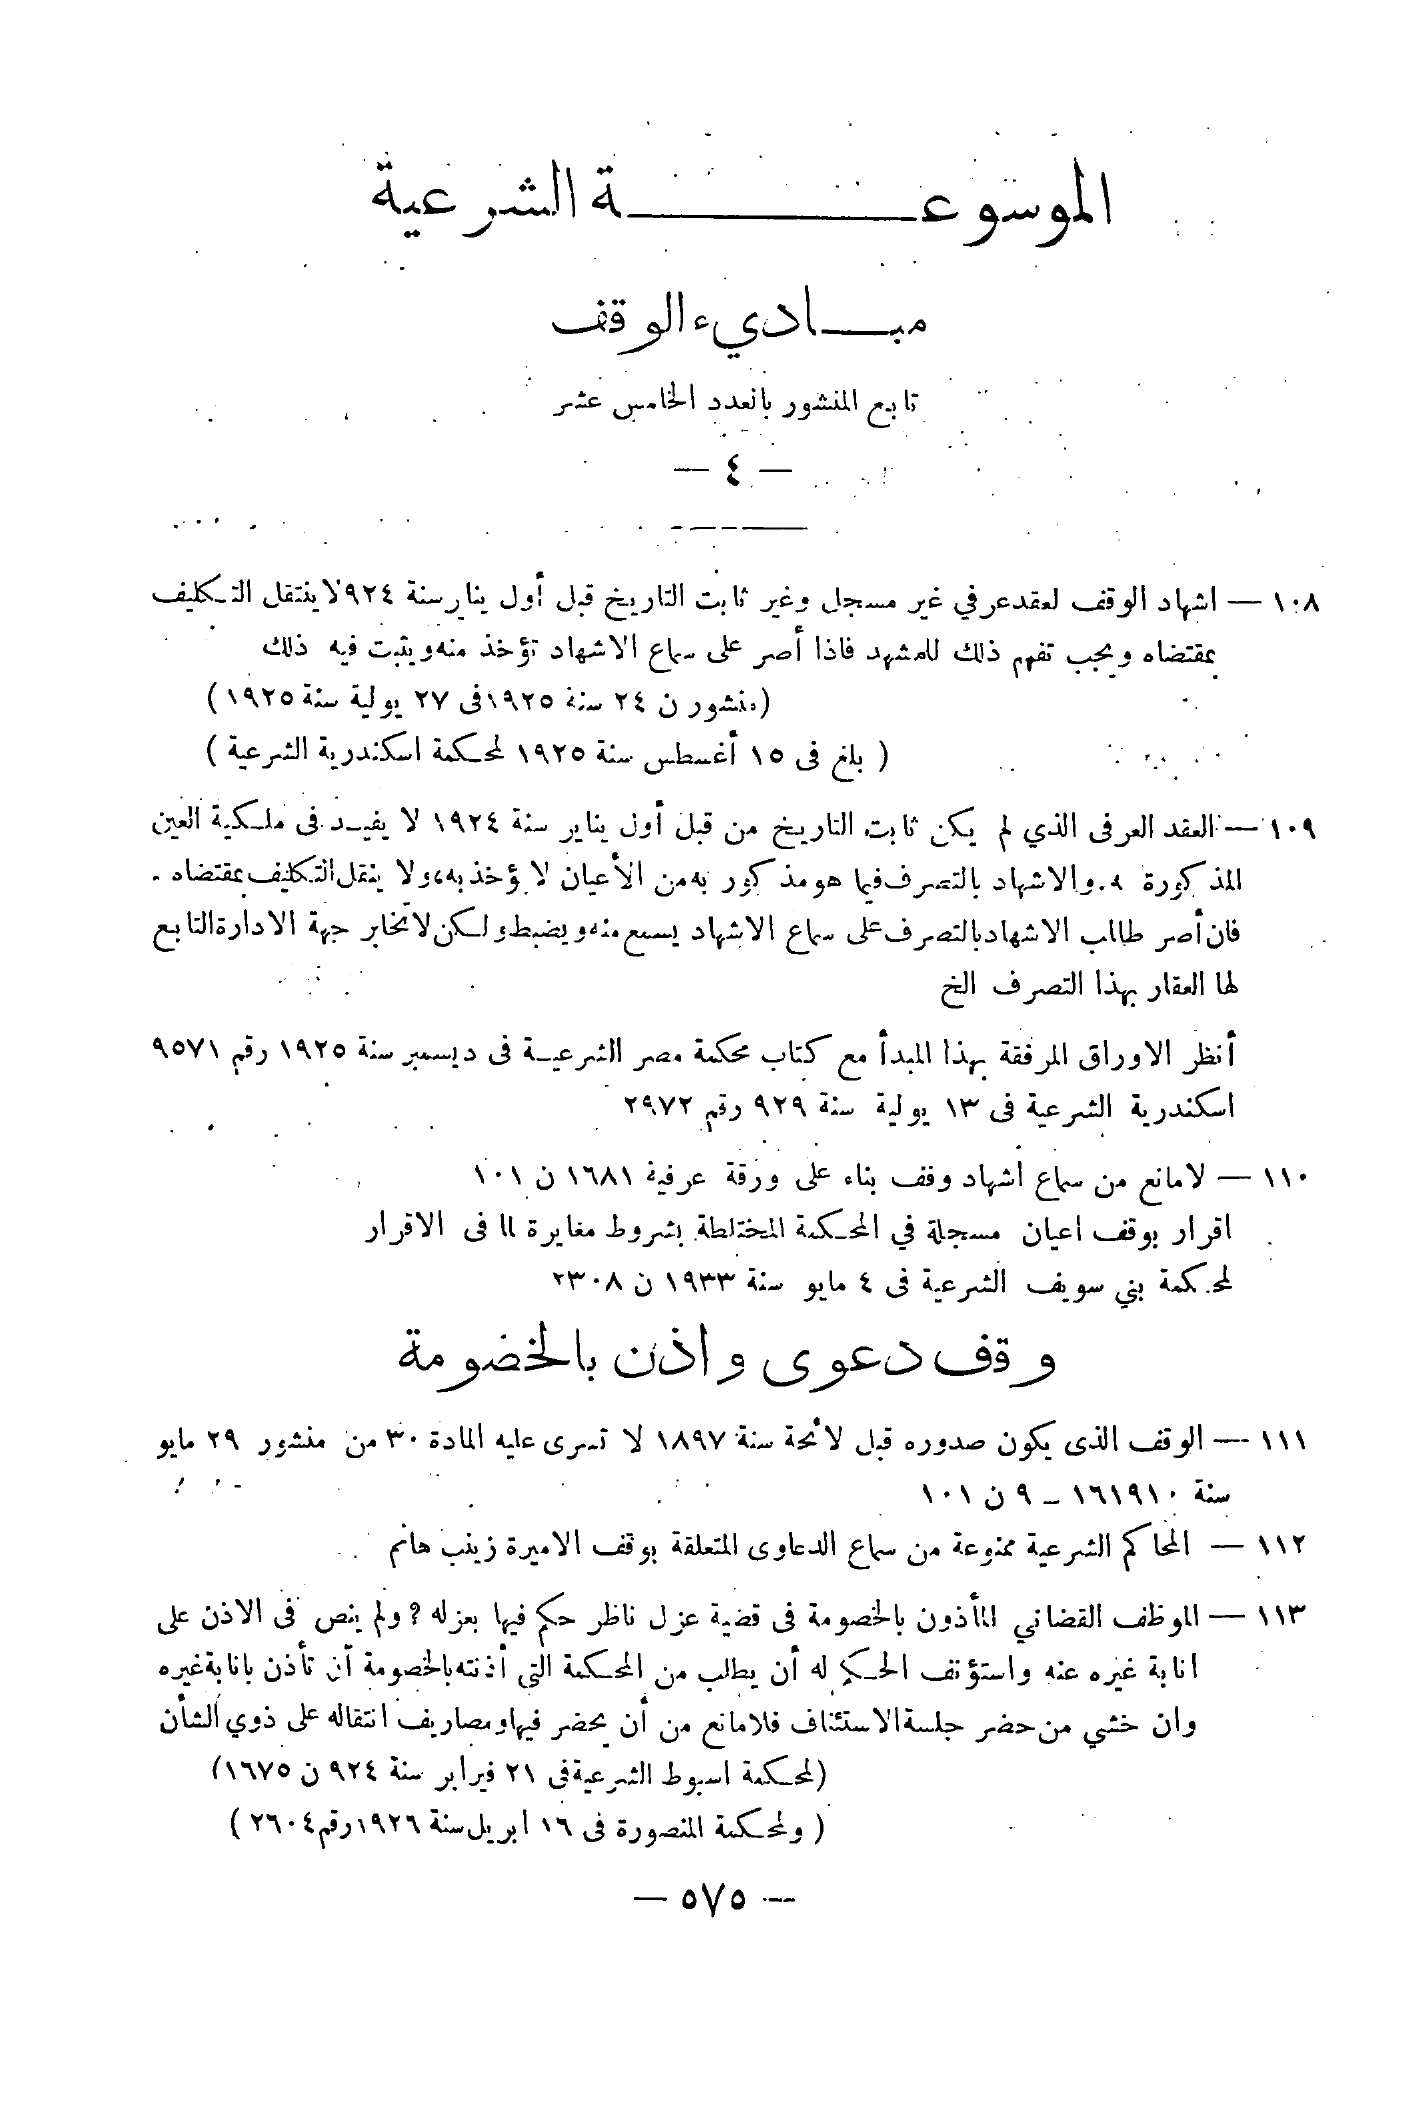 الموسوعة الشرعية
مباديء الوقف
تابع المنشور بالعدد الخامس عشر
— ٤ —
١٠٨ — اشهاد الوقف لعقد عرفي غير مسجل وغير ثابت التاريخ قبل أول يناير سنة ٩٢٤ لا ينتقل التكليف
بمقتضاه ويجب تفهم ذلك للمشهد فاذا أصر على سماع الاشهاد تؤخذ منه ويثبت فيه ذلك
(منشور ن ٢٤ سنة ١٩٢٥ فى ٢٧ يولية سنة ١٩٢٥)
( بلغ فى ١٥ أغسطس سنة ١٩٢٥ لمحكمة اسكندرية الشرعية )
١٠٩ — العقد العرفى الذي لم يكن ثابت التاريخ من قبل أول يناير سنة ١٩٢٤ لا يفيد فى ملكية العين
المذكورة به. والاشهاد بالتصرف فيما هو مذكور به من الأعيان لا يؤخذ به، ولا ينقل التكليف بمقتضاه .
فان أصر طالب الاشهاد بالتصرف على سماع الاشهاد يسمع منه ويضبط ولكن لا تخابر جهة الادارة التابع
لها العقار بهذا التصرف الخ
أنظر الاوراق المرفقة بهذا المبدأ مع كتاب محكمة مصر الشرعية فى ديسمبر سنة ١٩٢٥ رقم ٩٥٧١
اسكندرية الشرعية فى ١٣ يولية سنة ٩٢٩ رقم ٢٩٧٢
١١٠ — لا مانع من سماع أشهاد وقف بناء على ورقة عرفية ١٦٨١ ن ١٠١
اقرار بوقف اعيان مسجلة في المحكمة المختلطة بشروط مغايرة لما فى الاقرار
لمحكمة بني سويف الشرعية فى ٤ مايو سنة ١٩٣٣ ن ٢٣٠٨
وقف دعوى واذن بالخضومة
١١١ — الوقف الذى يكون صدوره قبل لائحة سنة ١٨٩٧ لا تسرى عليه المادة ٣٠ من منشور ٢٩ مايو
سنة ١٦١٩١٠ — ٩ ن ١٠١
١١٢ — المحاكم الشرعية ممنوعة من سماع الدعاوى المتعلقة بوقف الاميرة زينب هانم
١١٣ — الموظف القضائي المأذون بالخصومة فى قضية عزل ناظر حكم فيها بعزله ? ولم ينص فى الاذن على
انابة غيره عنه واستؤنف الحكم له أن يطلب من المحكمة التى أذنته بالخصومة أن تأذن بانابة غيره
وان خشي من حضر جلسة الاستئناف فلا مانع من أن يحضر فيها ومصاريف انتقاله على ذوي الشأن
(لمحكمة اسيوط الشرعية فى ٢١ فبراير سنة ٩٢٤ ن ١٦٧٥)
( ولمحكمة المنصورة فى ١٦ ابريل سنة ١٩٢٦ رقم ٢٦٠٤ )
— ٥٧٥ —